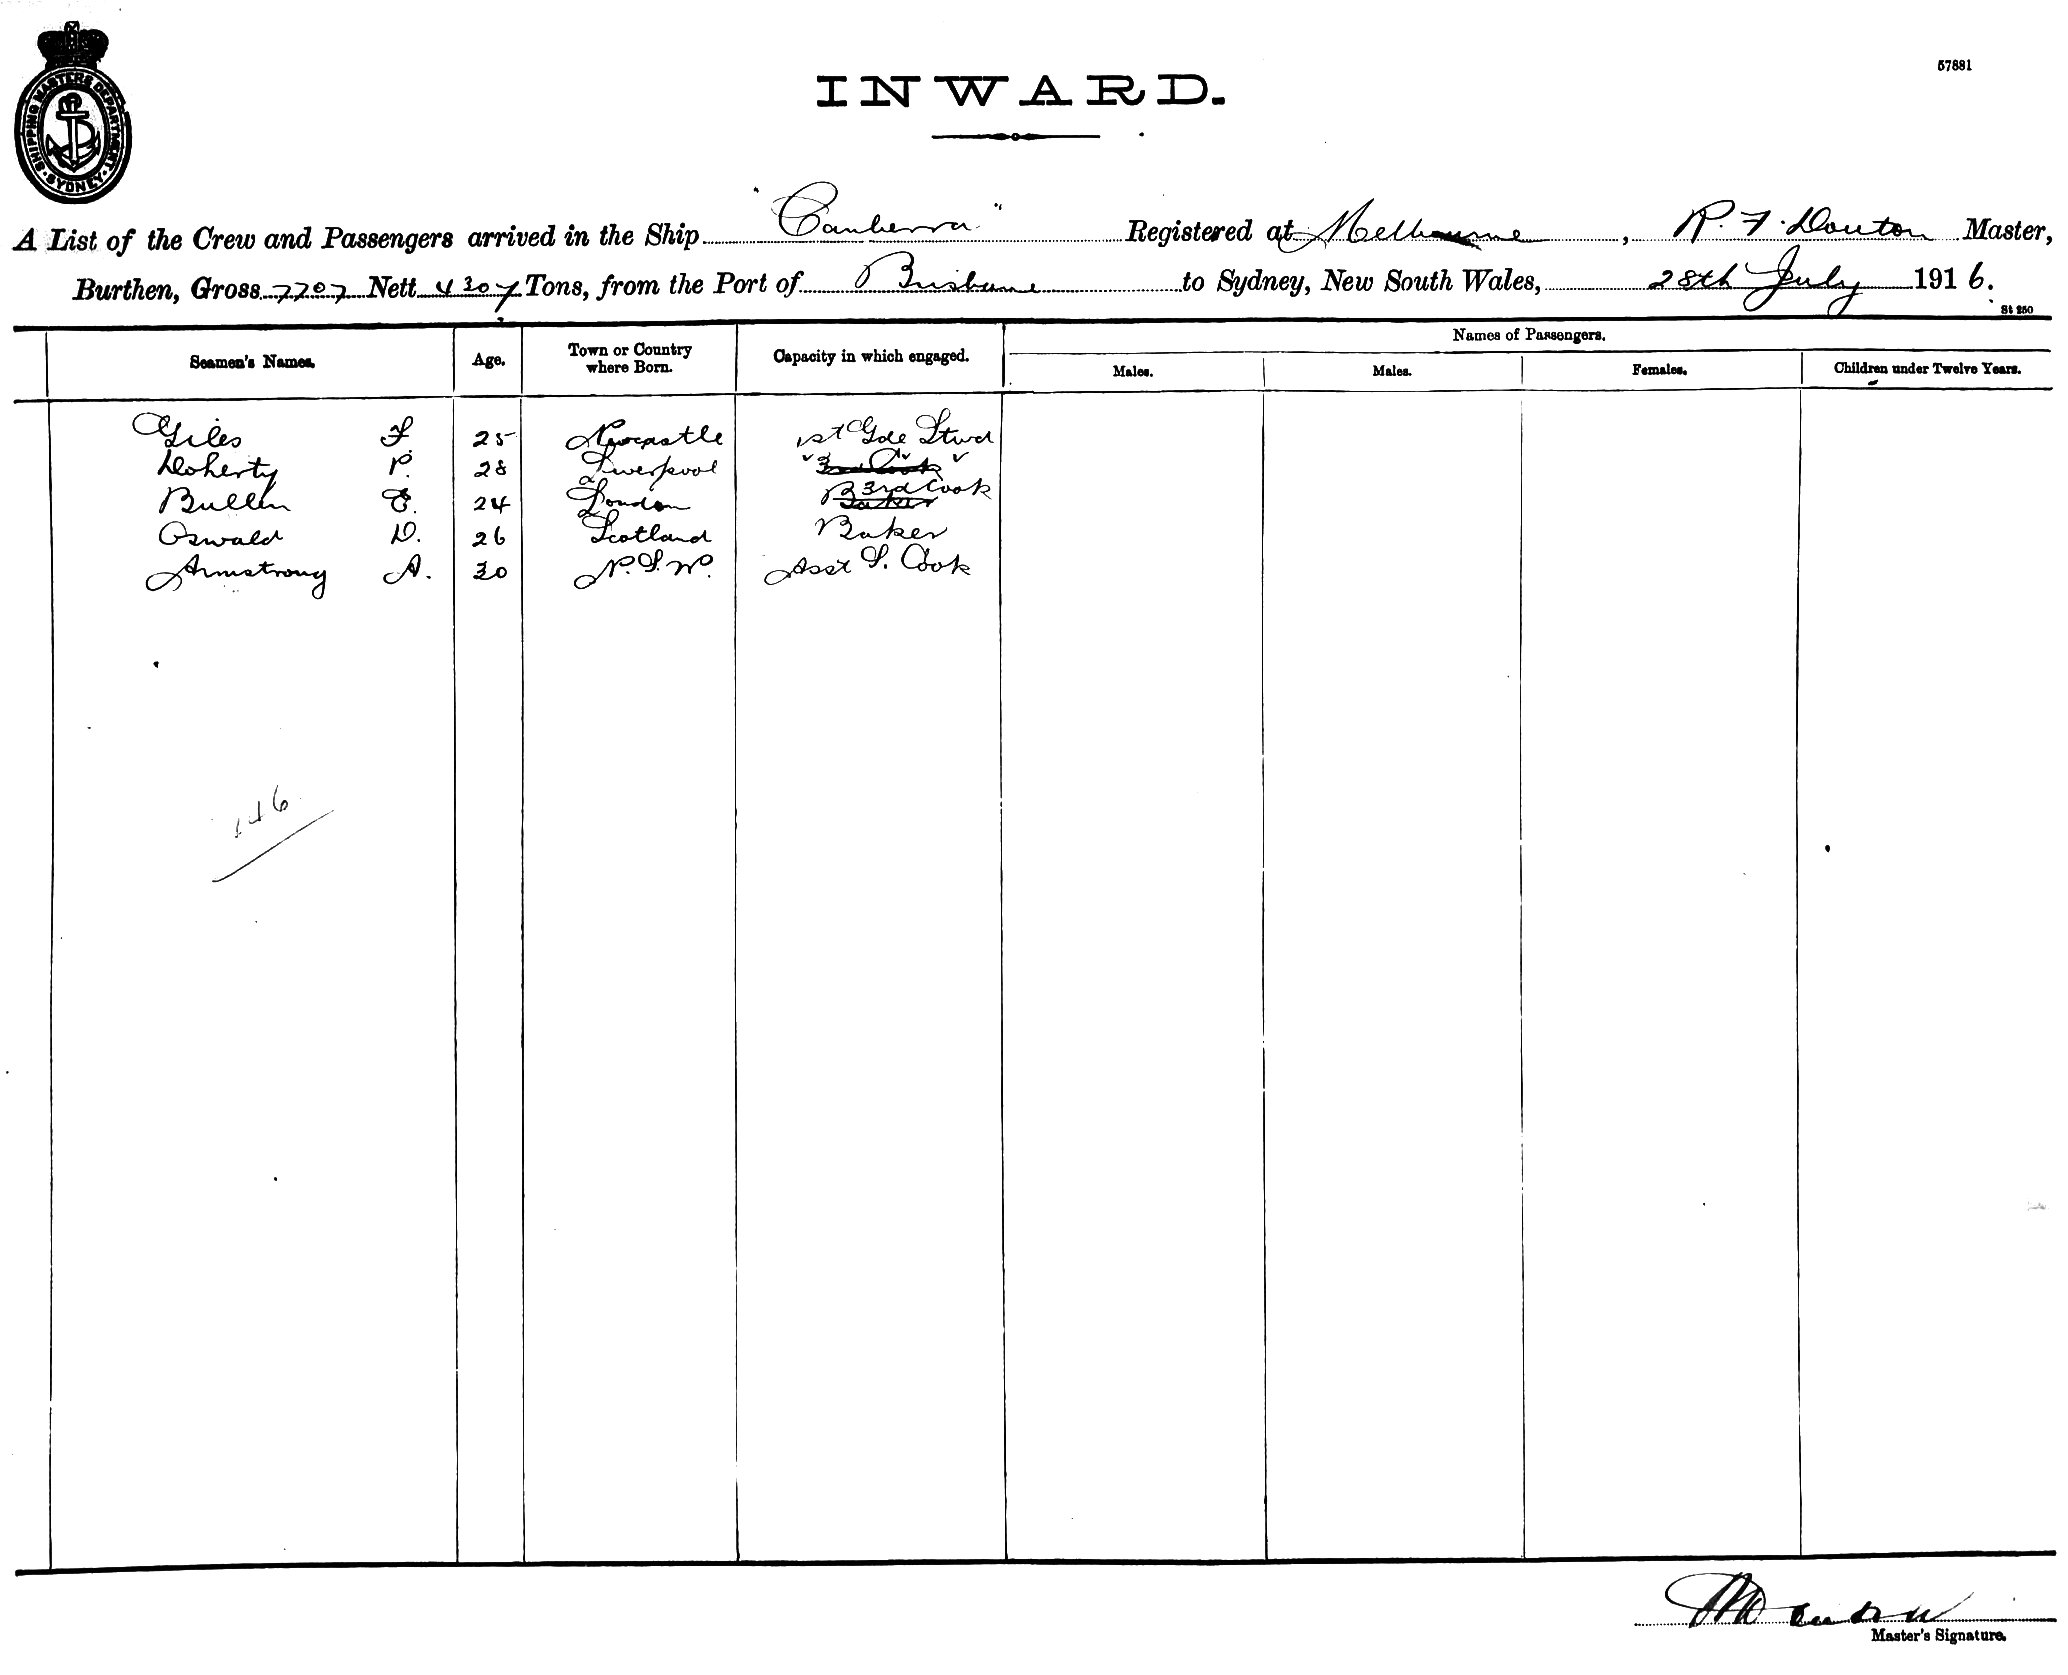 SHIPPING MASTERS DEPARTMENT
SYDNEY
57881
INWARD.
A List of the Crew and Passengers arrived in the Ship "Canberra" Registered at Melbourne, R. F. Douton Master,
Burthen, Gross 7707 Nett 4307 Tons, from the Port of Brisbane to Sydney, New South Wales, 28th July 1916.
St 250
Seamen's Names. Age. Town or Country where Born. Capacity in which engaged. Names of Passengers.
Males. Males. Females. Children under Twelve Years.
Giles F. 25 Newcastle 1st Gde Stwd
Doherty P. 28 Liverpool " 3rd Cook " "
Bullen E. 24 London Baker 3rd Cook
Oswald D. 26 Scotland Baker
Armstrong A. 30 N.S.W. Asst S. Cook
146
Master's Signature.